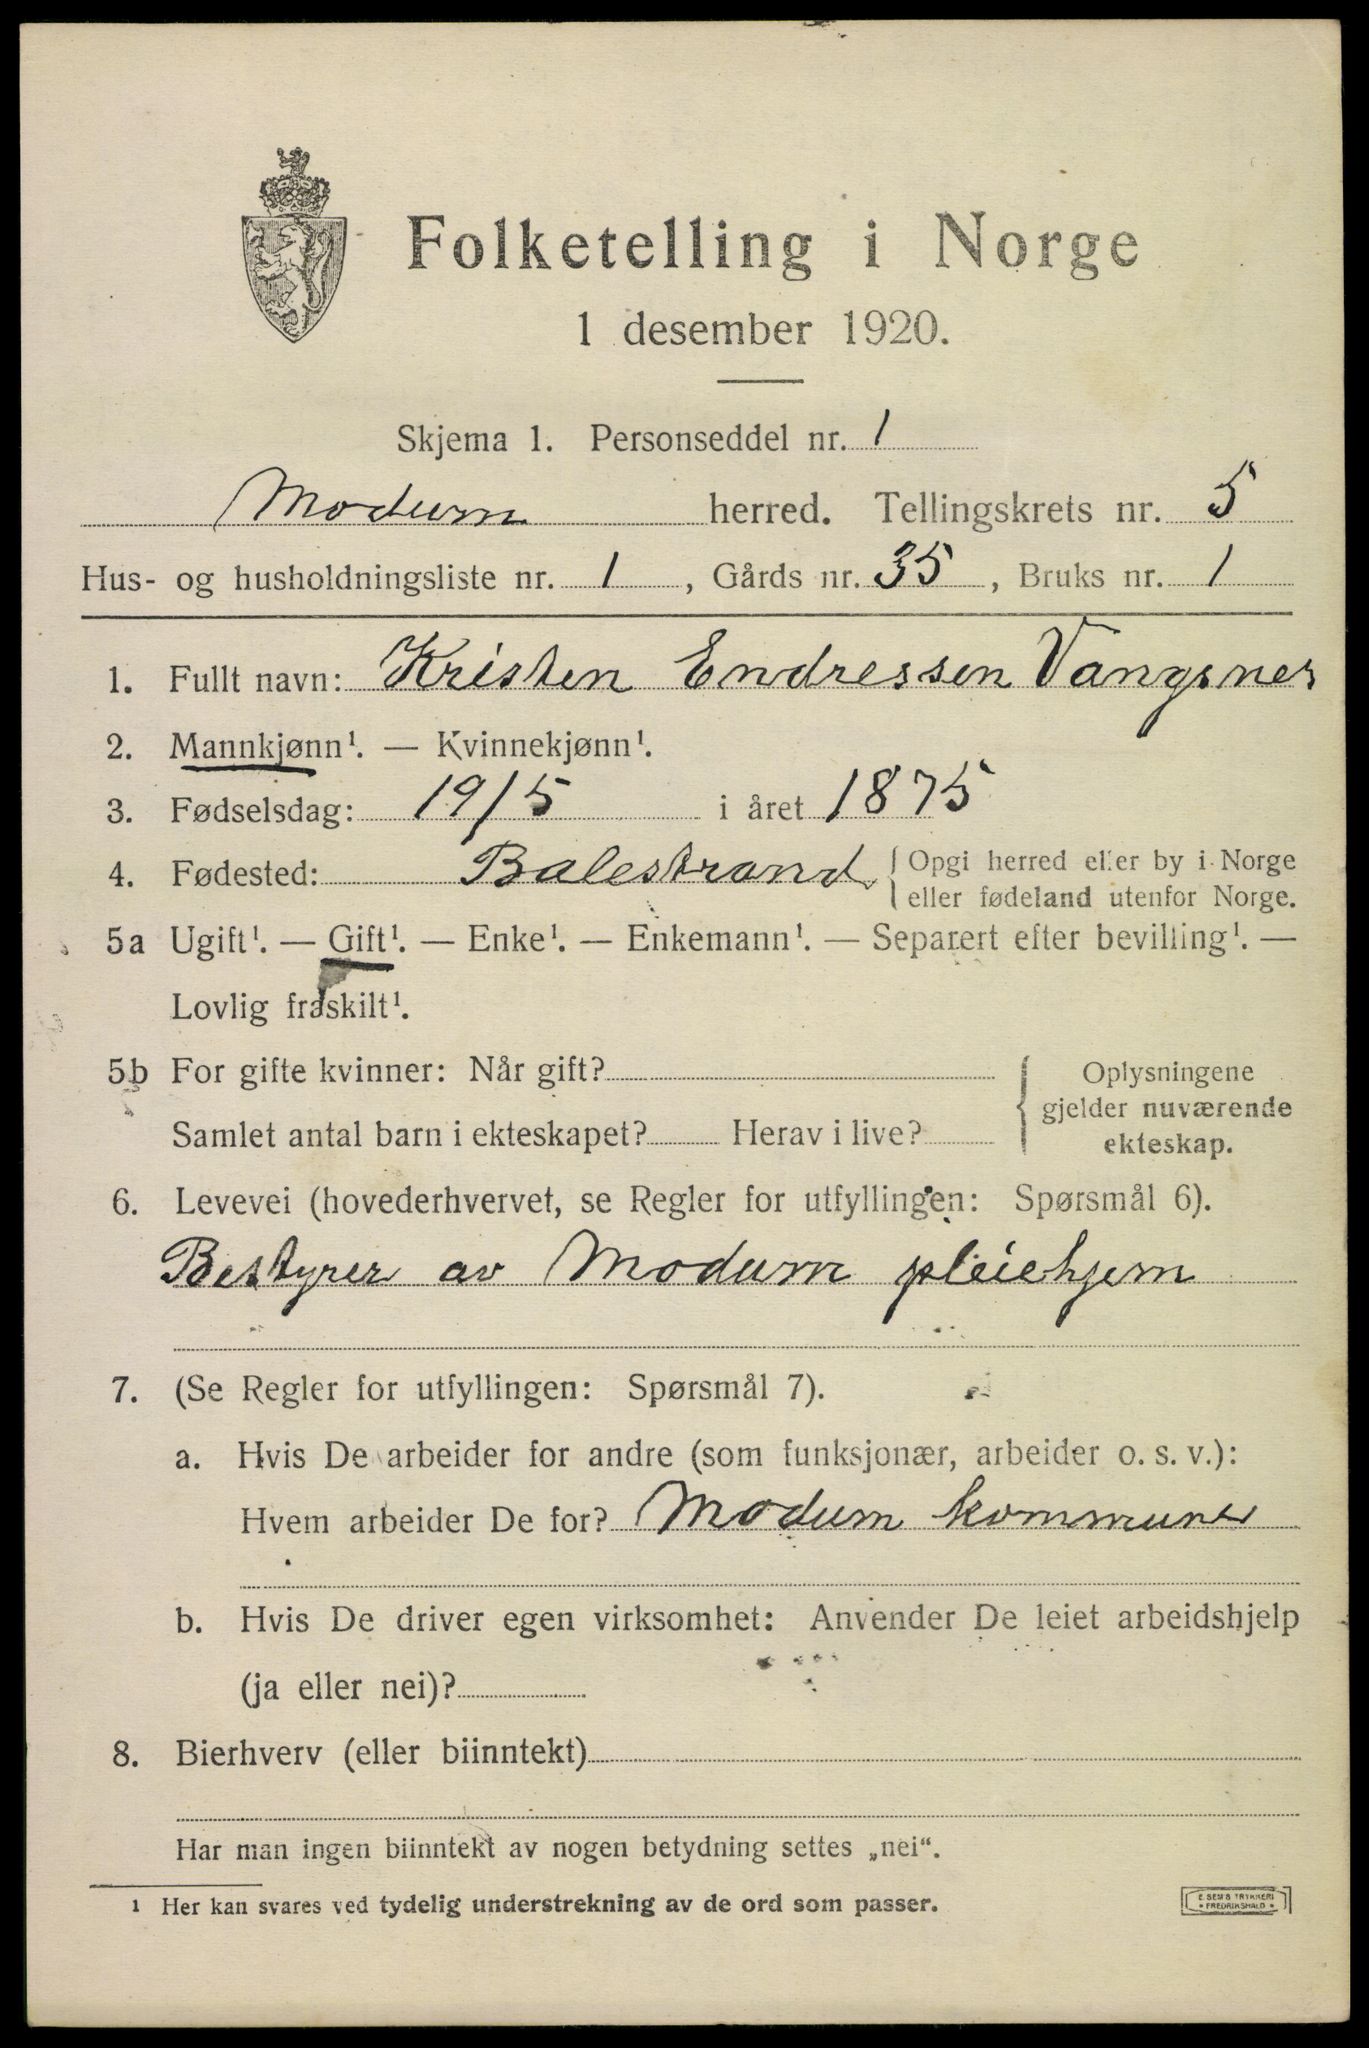 Folketelling i Norge
1 desember 1920.
Skjema 1. Personseddel nr. 1
Modum herred. Tellingskrets nr. 5
Hus- og husholdningsliste nr. 1, Gårds nr. 35, Bruks nr. 1
1. Fullt navn: Kristen Endressen Vangsnes
2. Mannkjønn¹. — Kvinnekjønn¹.
3. Fødselsdag: 19/5 i året 1875
4. Fødested: Balestrand. { Opgi herred eller by i Norge
eller fødeland utenfor Norge.
5a Ugift¹. — Gift¹. — Enke¹. — Enkemann¹. — Separert efter bevilling¹. —
Lovlig fraskilt¹.
5b For gifte kvinner: Når gift?
Samlet antal barn i ekteskapet? Herav i live?
{ Oplysningene
gjelder nuværende
ekteskap.
6. Levevei (hovederhvervet, se Regler for utfyllingen: Spørsmål 6).
Bestyrer av Modum pleiehjem
7. (Se Regler for utfyllingen: Spørsmål 7).
a. Hvis De arbeider for andre (som funksjonær, arbeider o. s. v.):
Hvem arbeider De for? Modum kommune
b. Hvis De driver egen virksomhet: Anvender De leiet arbeidshjelp
(ja eller nei)?
8. Bierhverv (eller biinntekt)
Har man ingen biinntekt av nogen betydning settes „nei“.
1 Her kan svares ved tydelig understrekning av de ord som passer.
E. SEMS TRYKKERI
FREDRIKSHALD